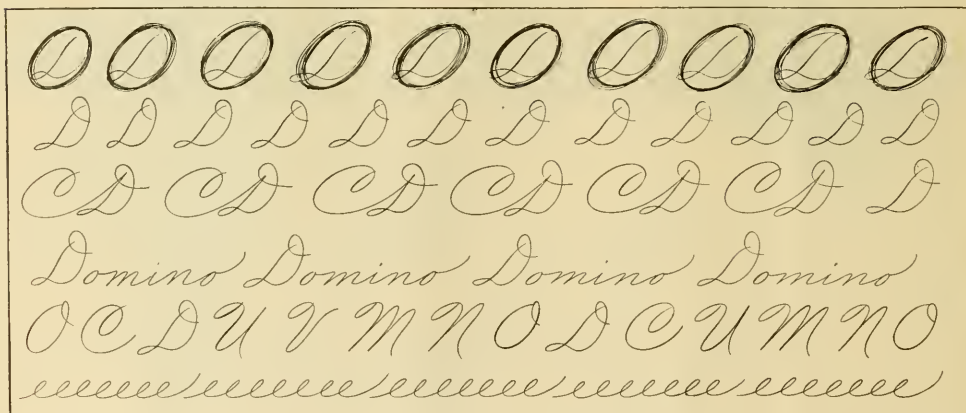 D D D D D D D D D D
D D D D D D D D D D D D
CD CD CD CD CD CD D
Domino Domino Domino Domino
O C D U V M N O D C U M N O
eeeeeee eeeeeee eeeeeee eeeeeee eeeeeee